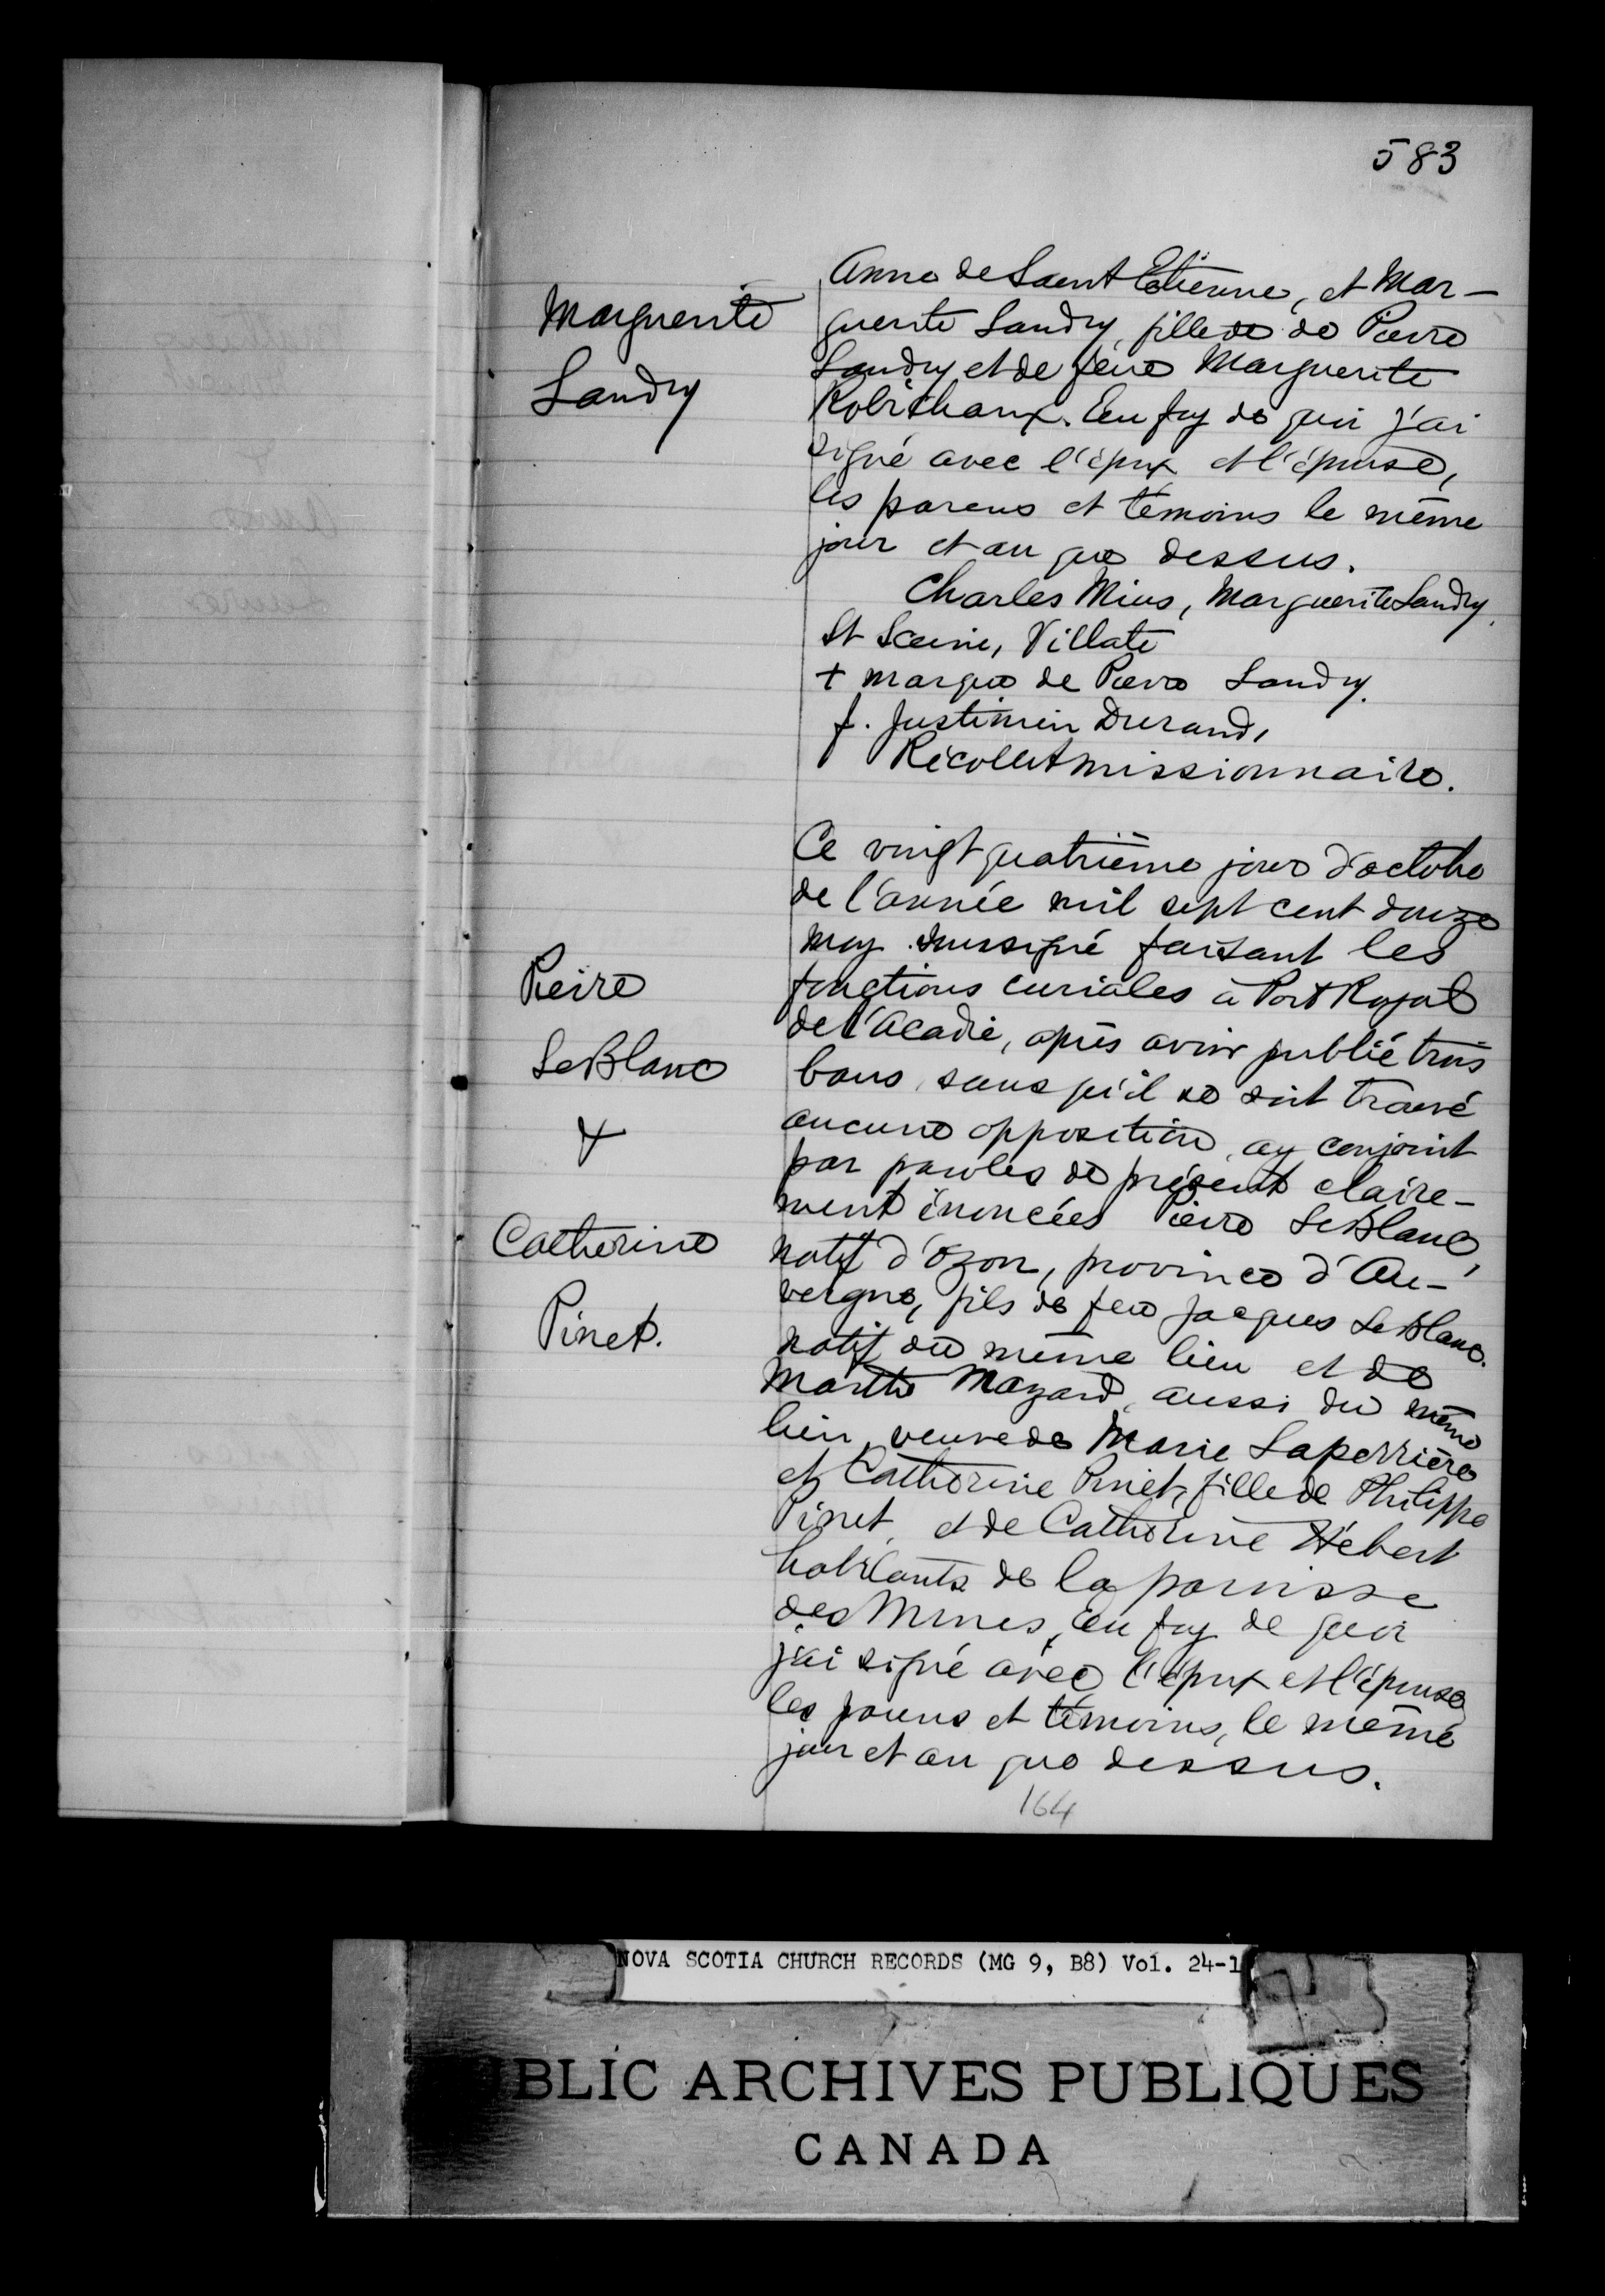 583
Marguerite
Landry
Anne de Saint Etienne, et Mar-
guerite Landry, fille de de Pierre
Landry et de feue Marguerite
Robichaux. En foy de quoi j'ai
signé avec l'époux et l'épouse,
les parens et témoins le même
jour et an que dessus.
Charles Mius, Marguerite Landry,
St Scene, Villate
+ marque de Pierre Landry.
f. Justinien Durand,
Récollet missionnaire.
Pierre
LeBlanc
&
Catherine
Pinet.
Ce vingt quatrième jour d'octobre
de l'année mil sept cent douze
moy soussigné faisant les
fonctions curiales à Port Royal
de l'Acadie, après avoir publié trois
bans, sans qu'il se soit trouvé
aucune opposition, ay conjoint
par paroles de présent claire-
ment énoncées Pierre LeBlanc,
natif d'Ozon, province d'Au-
vergne, fils de feu Jacques LeBlanc.
natif du même lieu et de
Marthe Mazard, aussi du même
lieu, veuve de Marie Laperrière
et Catherine Pinet, fille de Philippe
Pinet, et de Catherine Hébert
habitants de la paroisse
des Mines, En foy de quoi
j'ai signé avec l'époux et l'épouse
les parens et témoins, le même
jour et an que dessus.
164
NOVA SCOTIA CHURCH RECORDS (MG 9, B8) Vol. 24-1
BLIC ARCHIVES PUBLIQUES
CANADA